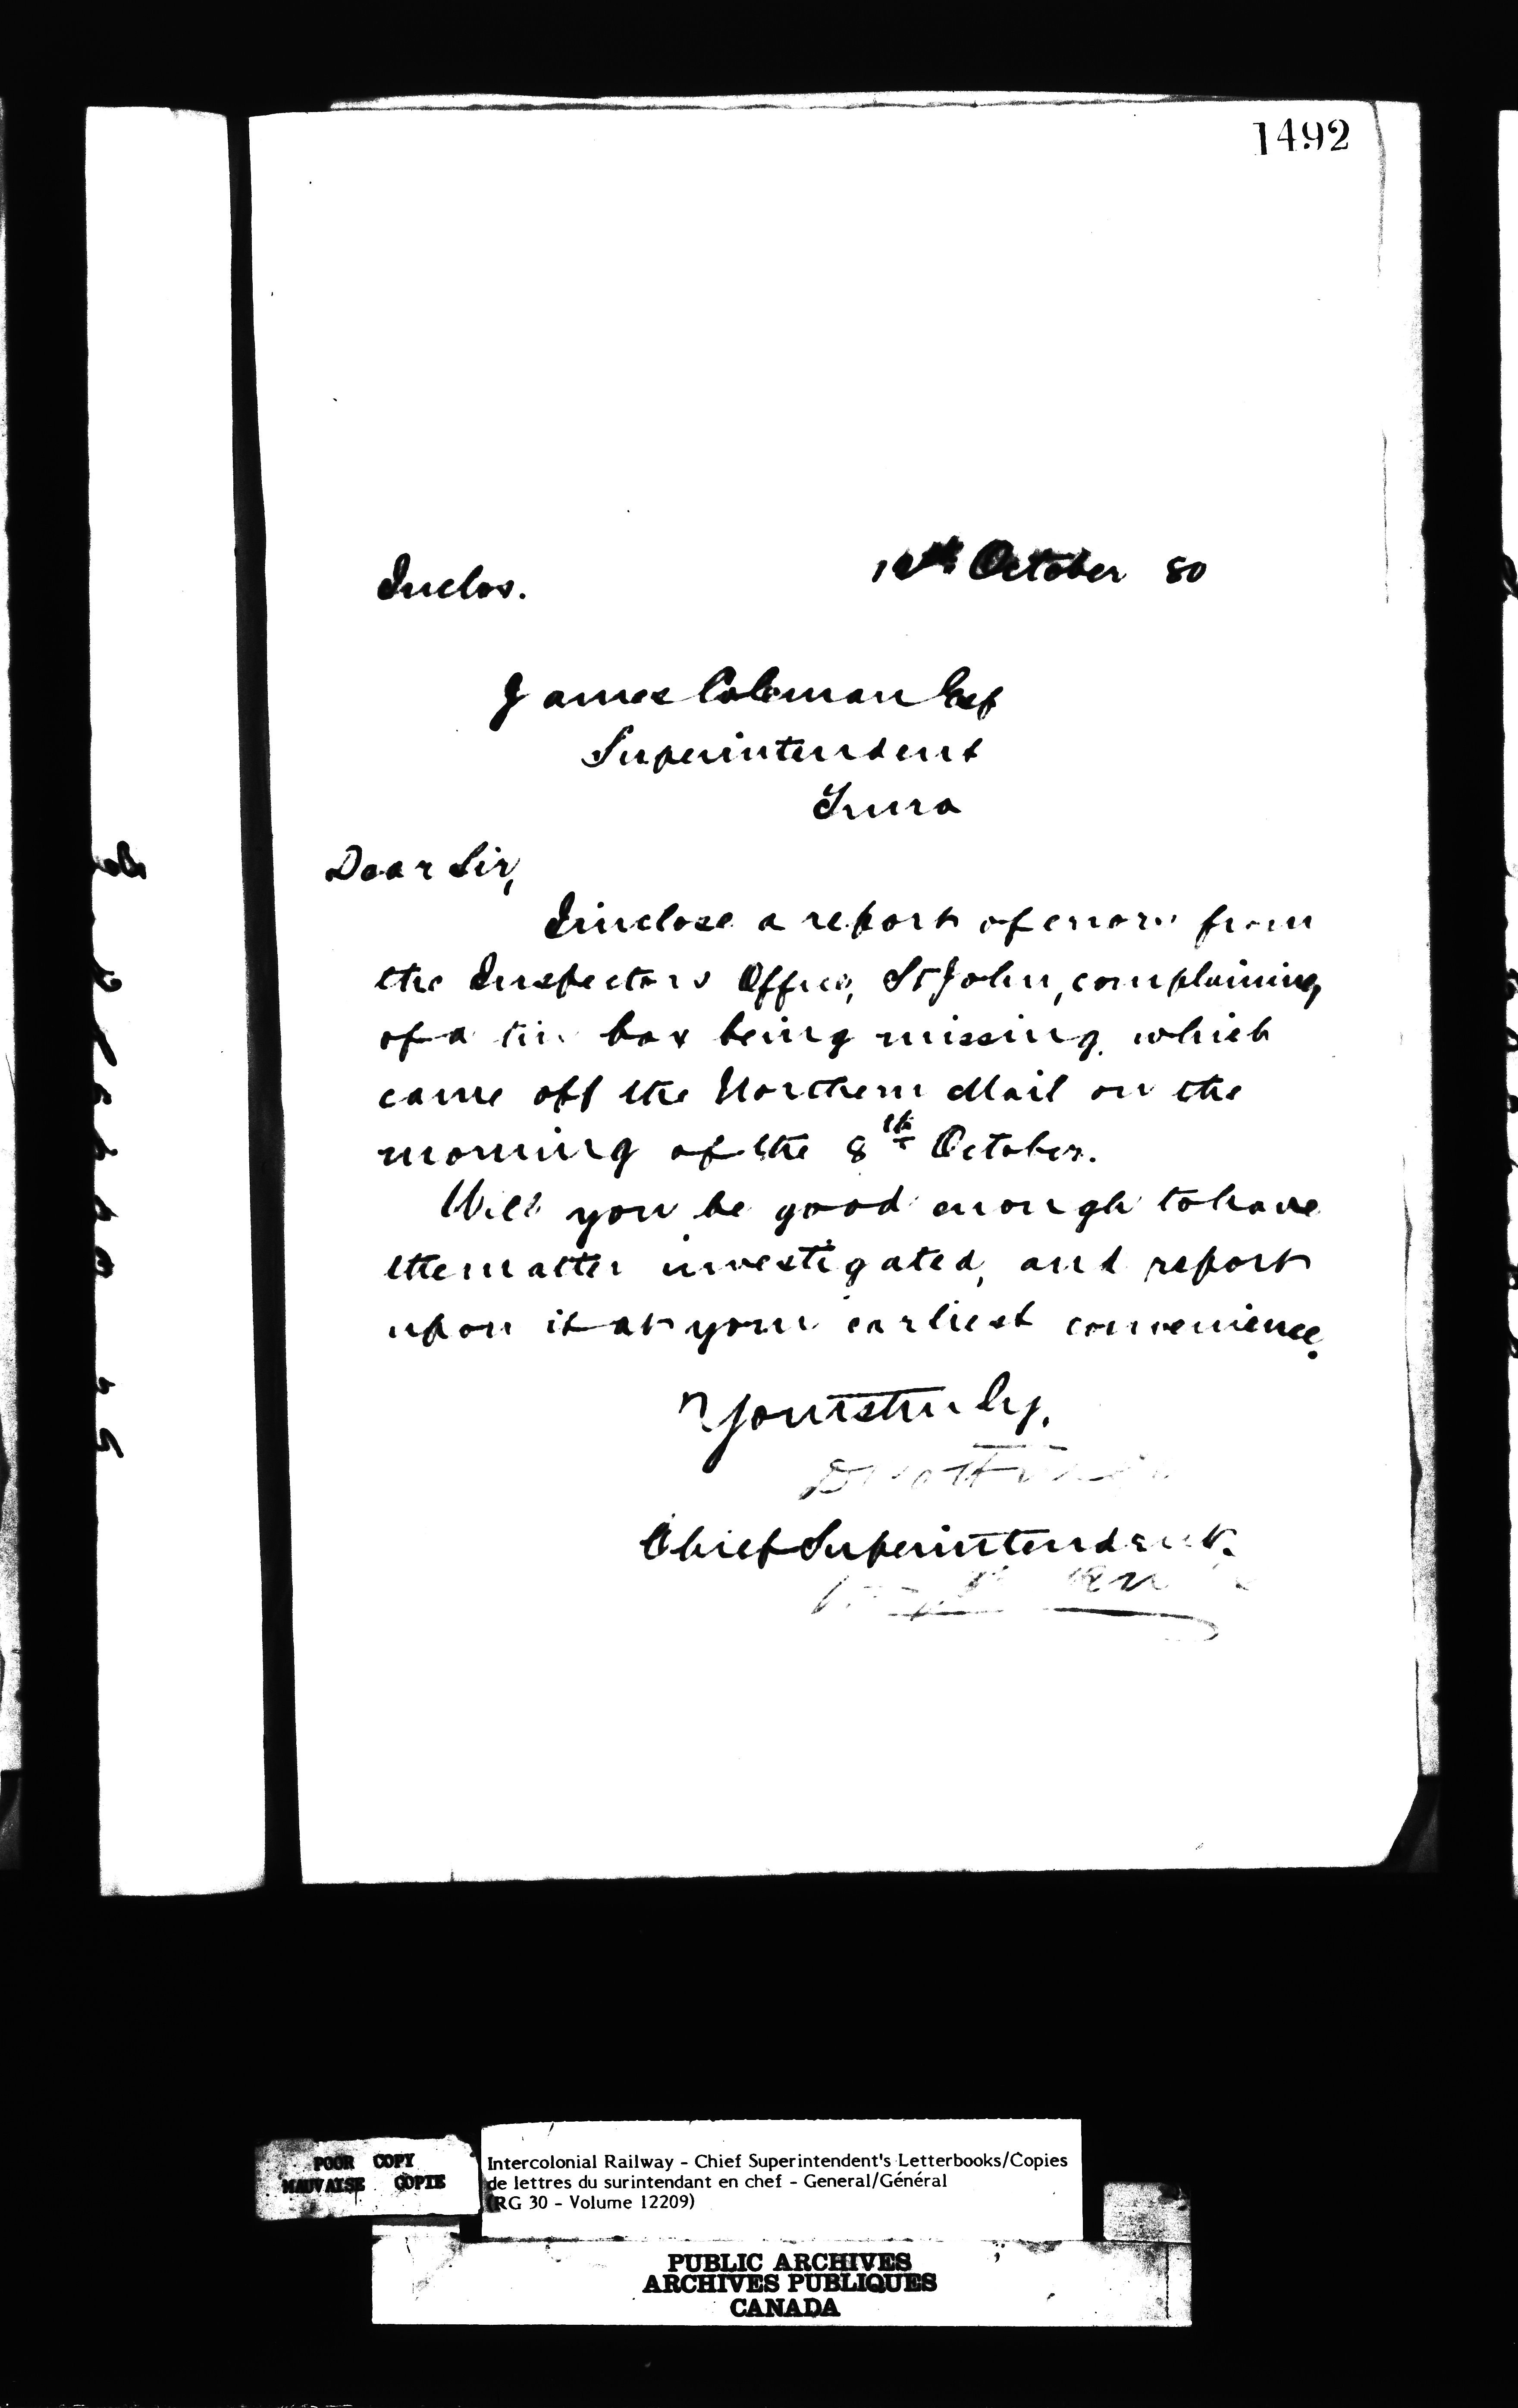 1492
Inclos.
October 80
James Coleman Esq
Superintendent
Truro
Dear Sir,
I inclose a report of errors from
the Inspectors Office, St John, complaining
of a tin box being missing, which
came off the Northern Mail on the
morning of the 8th October.
Will you be good enough to have
the matter investigated, and report
upon it at your earliest convenience.
Yours truly,
Chief Superintendent.
POOR COPY
MAUVAISE COPIE
Intercolonial Railway - Chief Superintendent's Letterbooks/Copies
de lettres du surintendant en chef - General/Général
(RG 30 - Volume 12209)
PUBLIC ARCHIVES
ARCHIVES PUBLIQUES
CANADA